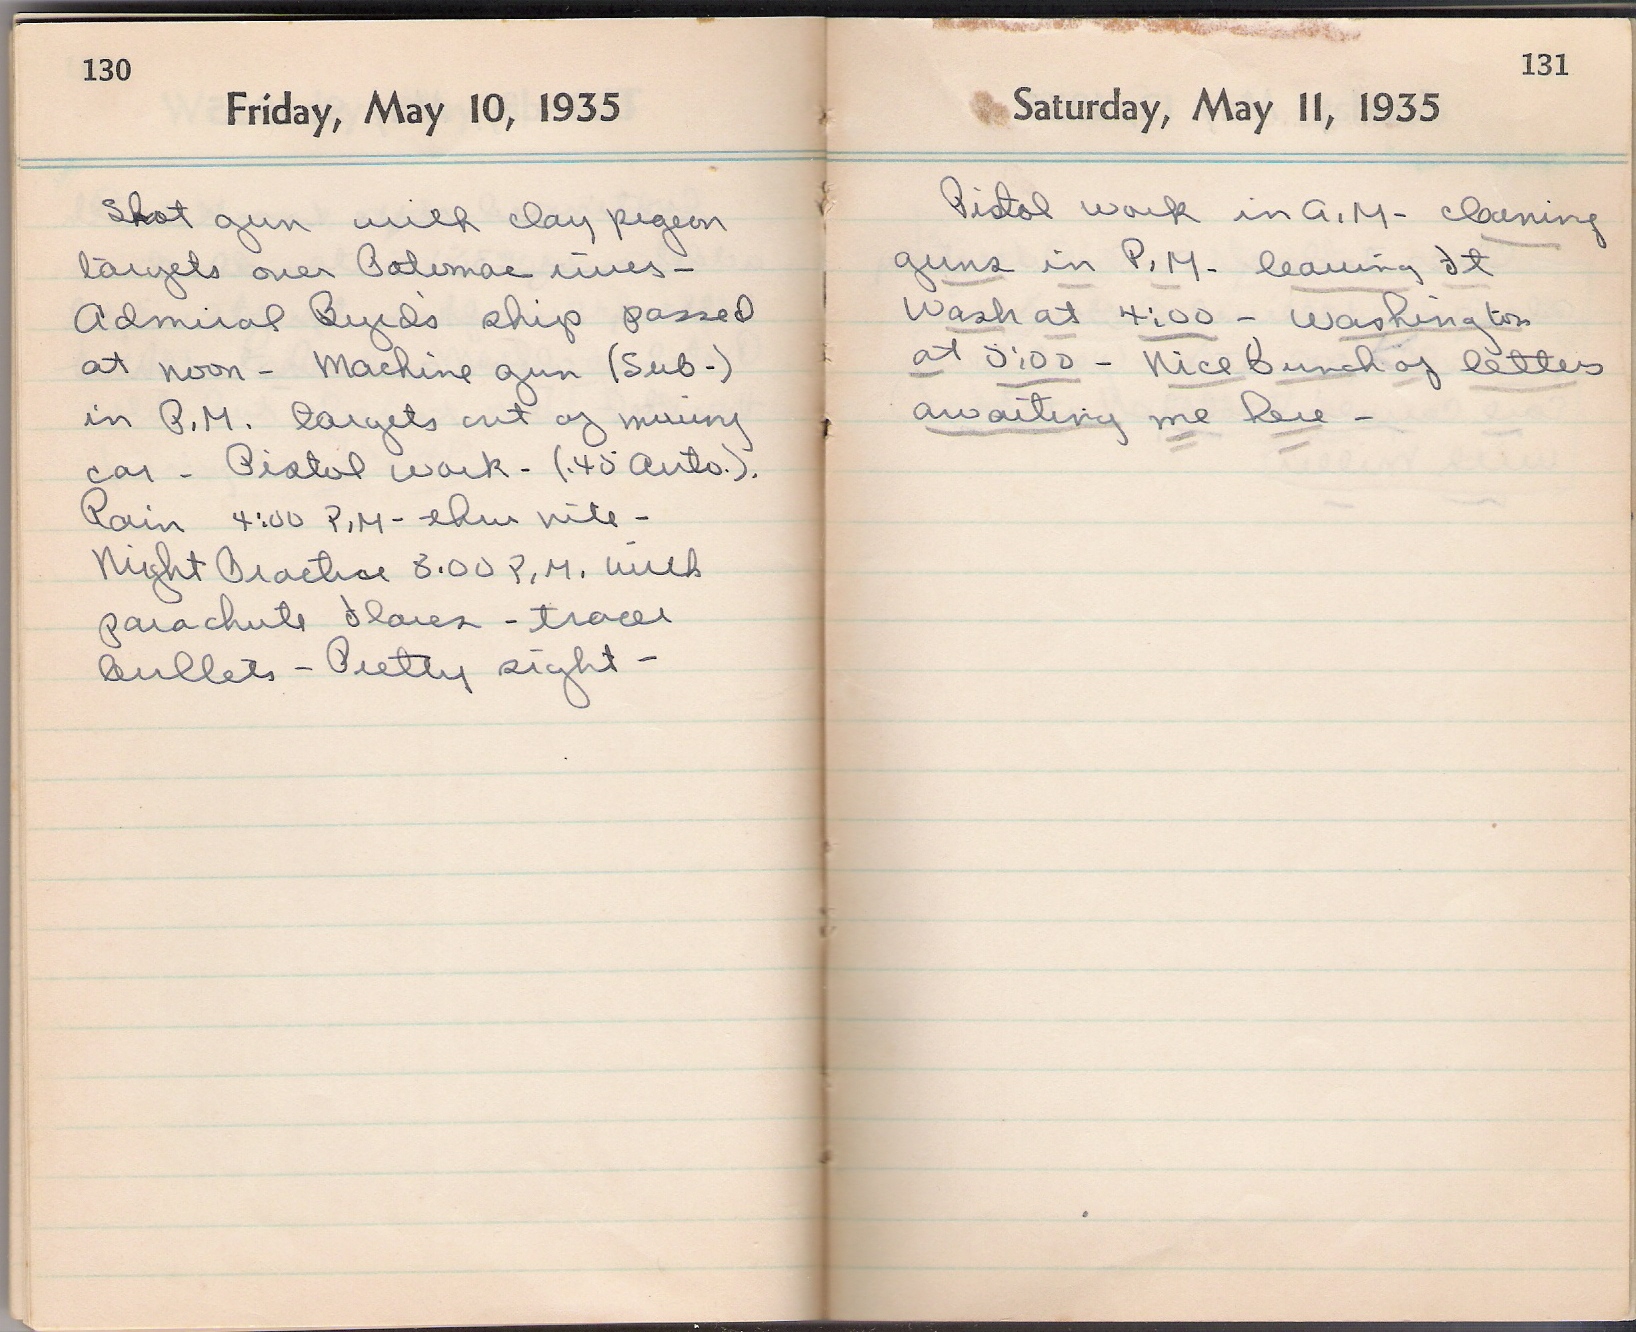 130
Friday, May 10, 1935
Shot gun with clay pigeon
targets over Potomac river -
Admiral Byrd's ship passed
at noon - Machine gun (Sub-)
in P.M. targets out of moving
car - Pistol work - (.45 Auto.).
Rain 4:00 P.M - thru nite -
Night Practice 8:00 P.M. with
parachute flares - tracer
bullets - Pretty sight -
131
Saturday, May 11, 1935
Pistol work in A.M - cleaning
guns in P.M. - leaving Ft
Wash at 4:00 - Washington
at 5:00 - Nice bunch of letters
awaiting me here -